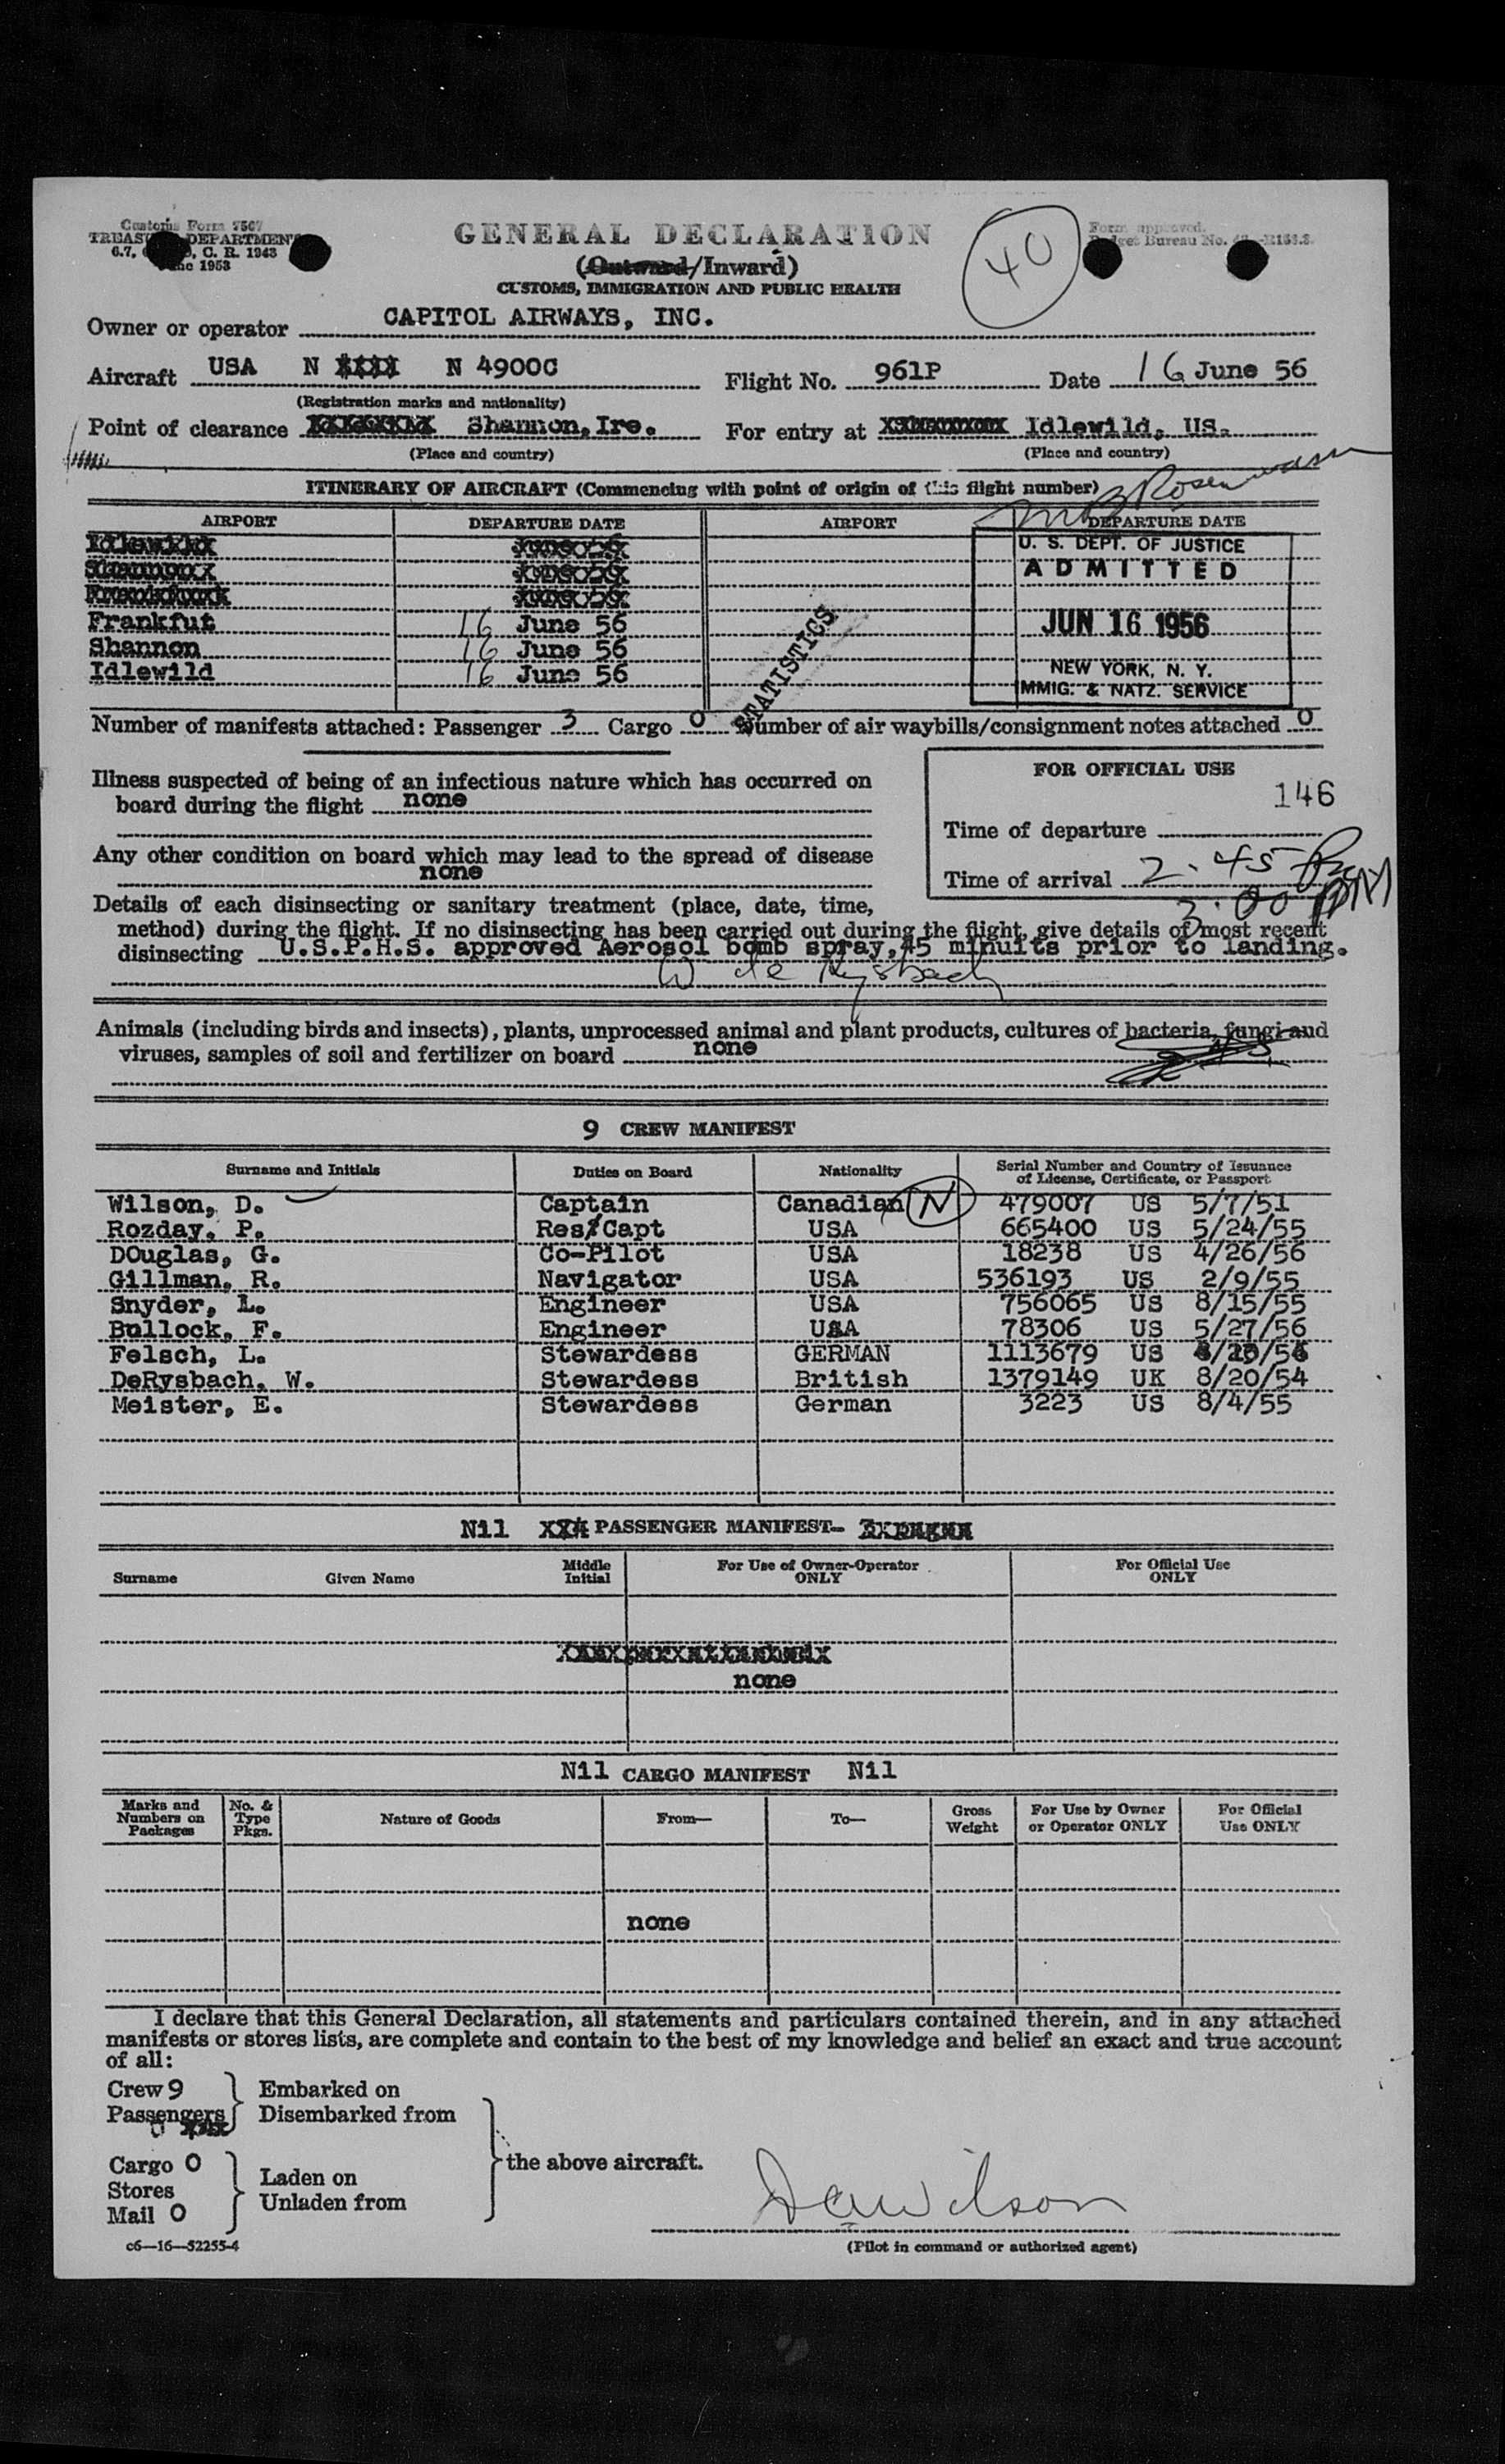 Customs Form 7507
TREASURY DEPARTMENT
6.7, C. R. 1943
June 1953
GENERAL DECLARATION
(Outward/Inward)
CUSTOMS, IMMIGRATION AND PUBLIC HEALTH
40
Form approved.
Budget Bureau No.
Owner or operator CAPITOL AIRWAYS, INC.
Aircraft USA N N 4900C Flight No. 961P Date 16 June 56
(Registration marks and nationality)
Point of clearance Shannon, Ire. For entry at Idlewild, US.
(Place and country) (Place and country)
ITINERARY OF AIRCRAFT (Commencing with point of origin of this flight number)
AIRPORT DEPARTURE DATE AIRPORT DEPARTURE DATE
Frankfut 16 June 56
Shannon 16 June 56
Idlewild 16 June 56
STATISTICS
U. S. DEPT. OF JUSTICE
ADMITTED
JUN 16 1956
NEW YORK, N. Y.
IMMIG. & NATZ. SERVICE
Number of manifests attached: Passenger 3 Cargo 0 Number of air waybills/consignment notes attached 0
Illness suspected of being of an infectious nature which has occurred on
board during the flight none
Any other condition on board which may lead to the spread of disease
none
FOR OFFICIAL USE
146
Time of departure
Time of arrival 2.45 PM
3.00 PM
Details of each disinsecting or sanitary treatment (place, date, time,
method) during the flight. If no disinsecting has been carried out during the flight, give details of most recent
disinsecting U.S.P.H.S. approved Aerosol bomb spray, 45 minuits prior to landing.
W de Rysbach
Animals (including birds and insects), plants, unprocessed animal and plant products, cultures of bacteria, fungi and
viruses, samples of soil and fertilizer on board none
9 CREW MANIFEST
Surname and Initials Duties on Board Nationality Serial Number and Country of Issuance
of License, Certificate, or Passport
Wilson, D. Captain Canadian N 479007 US 5/7/51
Rozday, P. Res/Capt USA 665400 US 5/24/55
DOuglas, G. Co-Pilot USA 18238 US 4/26/56
Gillman, R. Navigator USA 536193 US 2/9/55
Snyder, L. Engineer USA 756065 US 8/15/55
Bullock, F. Engineer USA 78306 US 5/27/56
Felsch, L. Stewardess GERMAN 1113679 US
DeRysbach, W. Stewardess British 1379149 UK 8/20/54
Meister, E. Stewardess German 3223 US 8/4/55
Nil PASSENGER MANIFEST
Surname Given Name Middle Initial For Use of Owner-Operator ONLY For Official Use ONLY
none
Nil CARGO MANIFEST Nil
Marks and Numbers on Packages No. & Type Pkgs. Nature of Goods From— To— Gross Weight For Use by Owner or Operator ONLY For Official Use ONLY
none
I declare that this General Declaration, all statements and particulars contained therein, and in any attached
manifests or stores lists, are complete and contain to the best of my knowledge and belief an exact and true account
of all:
Crew 9 Embarked on
Passengers 0 Disembarked from
the above aircraft.
Cargo 0
Stores Laden on
Mail 0 Unladen from
DaWilson
c6—16—52255-4
(Pilot in command or authorized agent)